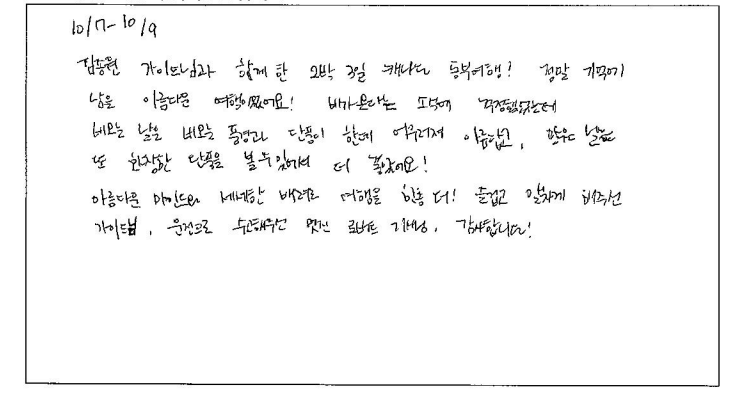 10/7-10/9
김동원 가이드님과 함께 한 2박 3일 캐나다 동부여행! 정말 기억에
남을 아름다운 여행이었어요! 비가온다는 소식에 걱정했었는데
비오는 날은 비오는 풍경과 단풍이 한데 어우러져 아름답고, 맑은 날은
또 화창한 단풍을 볼 수 있어서 더 좋았어요!
아름다운 마인드와 세세한 배려로 여행을 한층 더! 즐겁고 알차게 해주신
가이드님, 운전으로 수고해주신 멋진 로버트 기사님, 감사합니다!